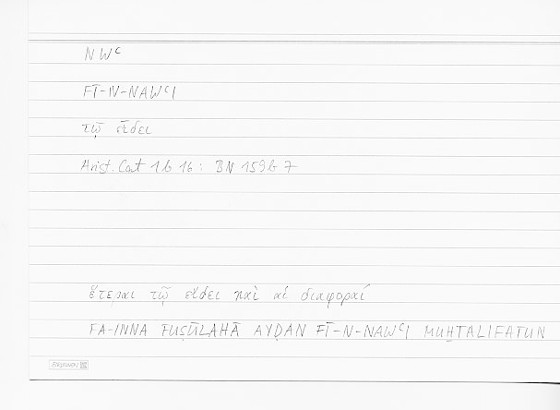 NWᶜ
FĪ-N-NAWᶜI
τῷ εἴδει
Arist. Cat 1b 16 : BN 159b 7
ἕτεραι τῷ εἴδει καὶ αἱ διαφοραί
FA-INNA FUṢŪLAHĀ AYḌAN FĪ-N-NAWᶜI MUḪTALIFATUN